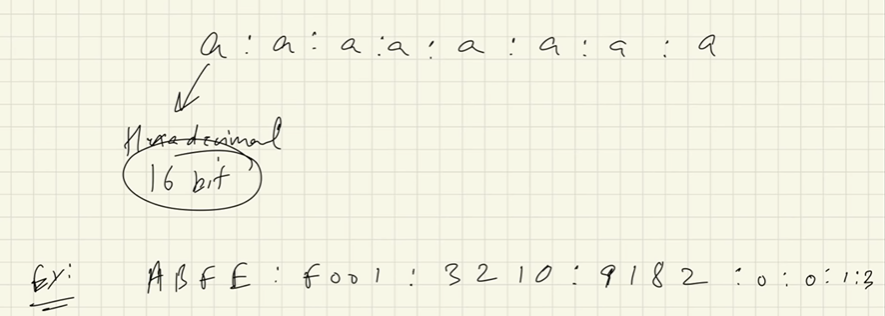 a : a : a : a : a : a : a : a
Hexadecimal
16 bit
Ex: ABFE : F001 : 3210 : 9182 : 0 : 0 : 1 : 3